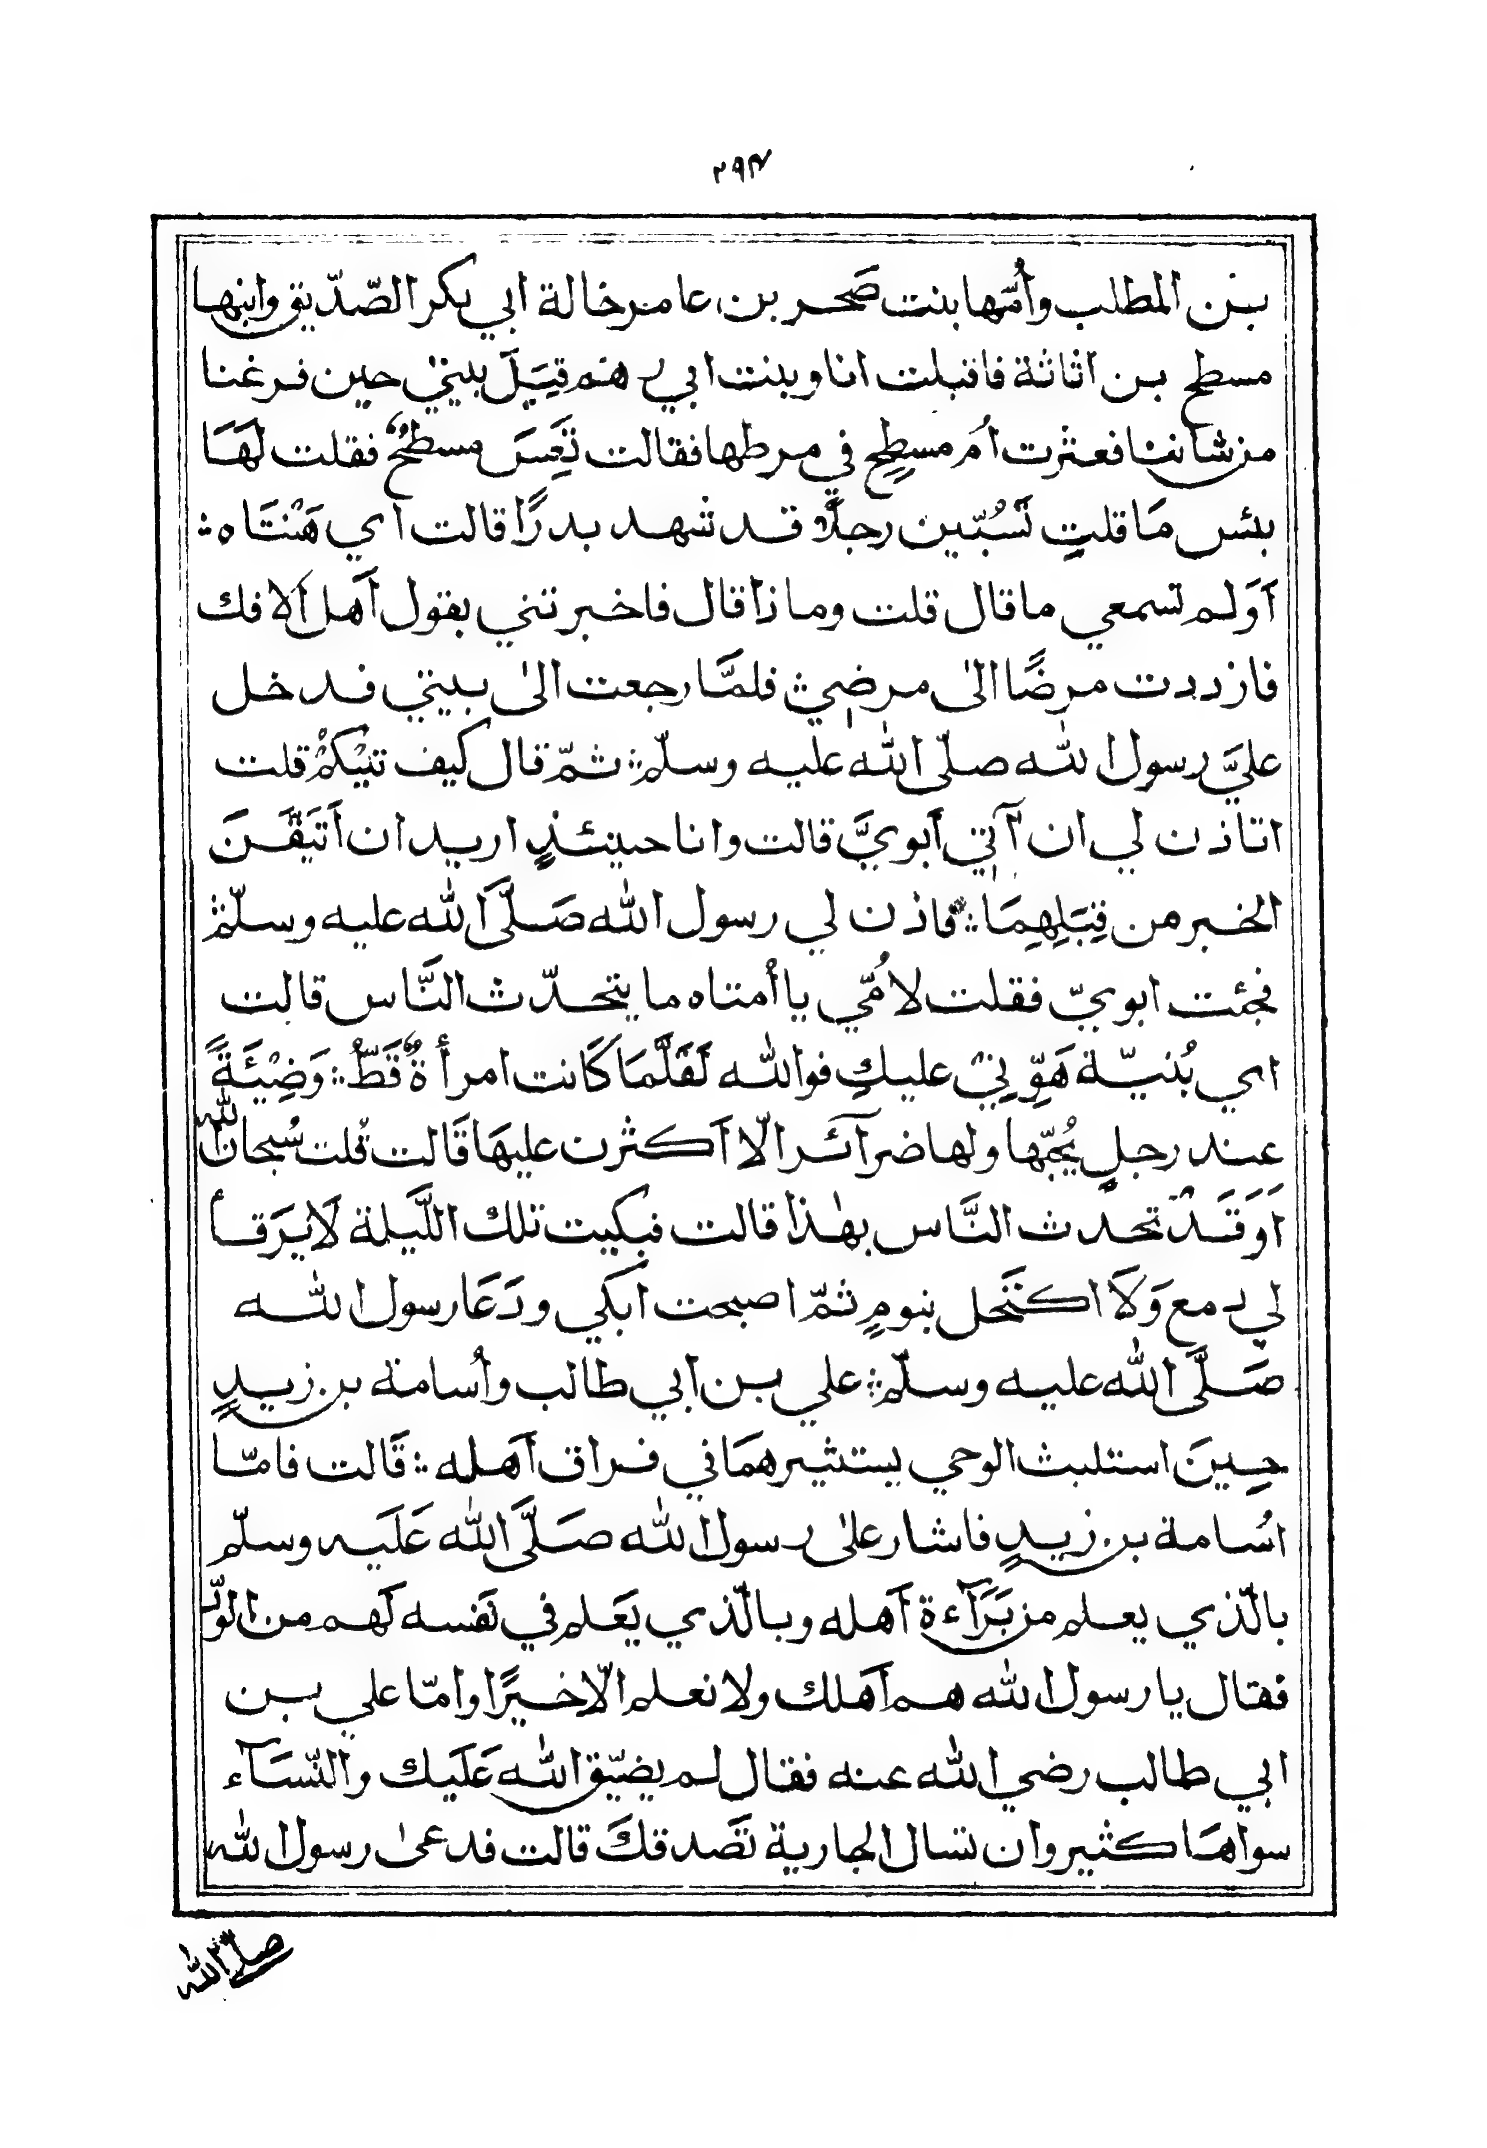 ٢٩٣
بن المطلب وأمّها بنت صَخر بن عامر خالة ابي بكر الصّديق وابنها
مسطح بن اثاثة فاقبلت انا وبنت ابي رهم قِبَلَ بيتي حين فرغنا
من شاننا فعثرت اُم مسطِحٍ في مرطها فقالت تَعِسَ مسطحٌ فقلت لَهَا
بئس مَا قلتِ تَسُبّين رجلًا قد شهد بدرًا قالت اي هَنْتَاه
أَوَلم تسمعي ما قال قلت وماذا قال فاخبرتني بقول أَهل اَلافك
فازددت مرضًا الىٰ مرضي فلمَّا رجعت الىٰ بيتي فدخل
عليَّ رسول الله صلّى الله عليه وسلّم ثمّ قال كيف تيْكُمْ قلت
اتاذن لي ان آتي أبويَّ قالت وانا حينئذٍ اريد ان اَتَيَقَّنَ
الخبر من قِبَلِهِمَا فاذن لي رسول الله صَلَّى الله عليه وسلّم
فجئت ابويّ فقلت لاُمّي يا أمتاه ما يتحدّث النَّاس قالت
اي بُنيّة هَوِّنِيْ عليكِ فوالله لَقَلَّمَا كَانت امرأةٌ قَطّ وَضِيْئَةً
عند رجلٍ يُحبّها ولها ضرآئر الّا اَكثرن عليهَا قَالت قلت سُبحان الله
اَوَقَدْ تحدث النَّاس بهٰذا قالت فبكيت تلك اللَّيلة لَا يَرَقأ
لي دمع وَلَا اكتَحل بنومٍ ثمّ اصبحت ابكي ودَعَا رسول الله
صَلَّى الله عليه وسلّم علي بن ابي طالب وأسامة بن زيدٍ
حِينَ استلبث الوحي يستشيرهمَا في فراق اَهله قَالت فامّا
اسُامة بن زيدٍ فاشار علىٰ رسول الله صَلَّى الله عَلَيه وسلّم
بالّذي يعلم من بَرَآءة أهله وبالّذي يَعَلم في نَفسه لَهم من الودّ
فقال يا رسول الله هم اَهلك ولا نعلم الّا خيرًا وامّا علي بن
ابي طالب رضي الله عنه فقال لم يضيّق الله عَلَيك والنّسَآء
سواهَا كثير وان تسال الجارية تَصدقكَ قالت فدعىٰ رسول الله
صلى الله